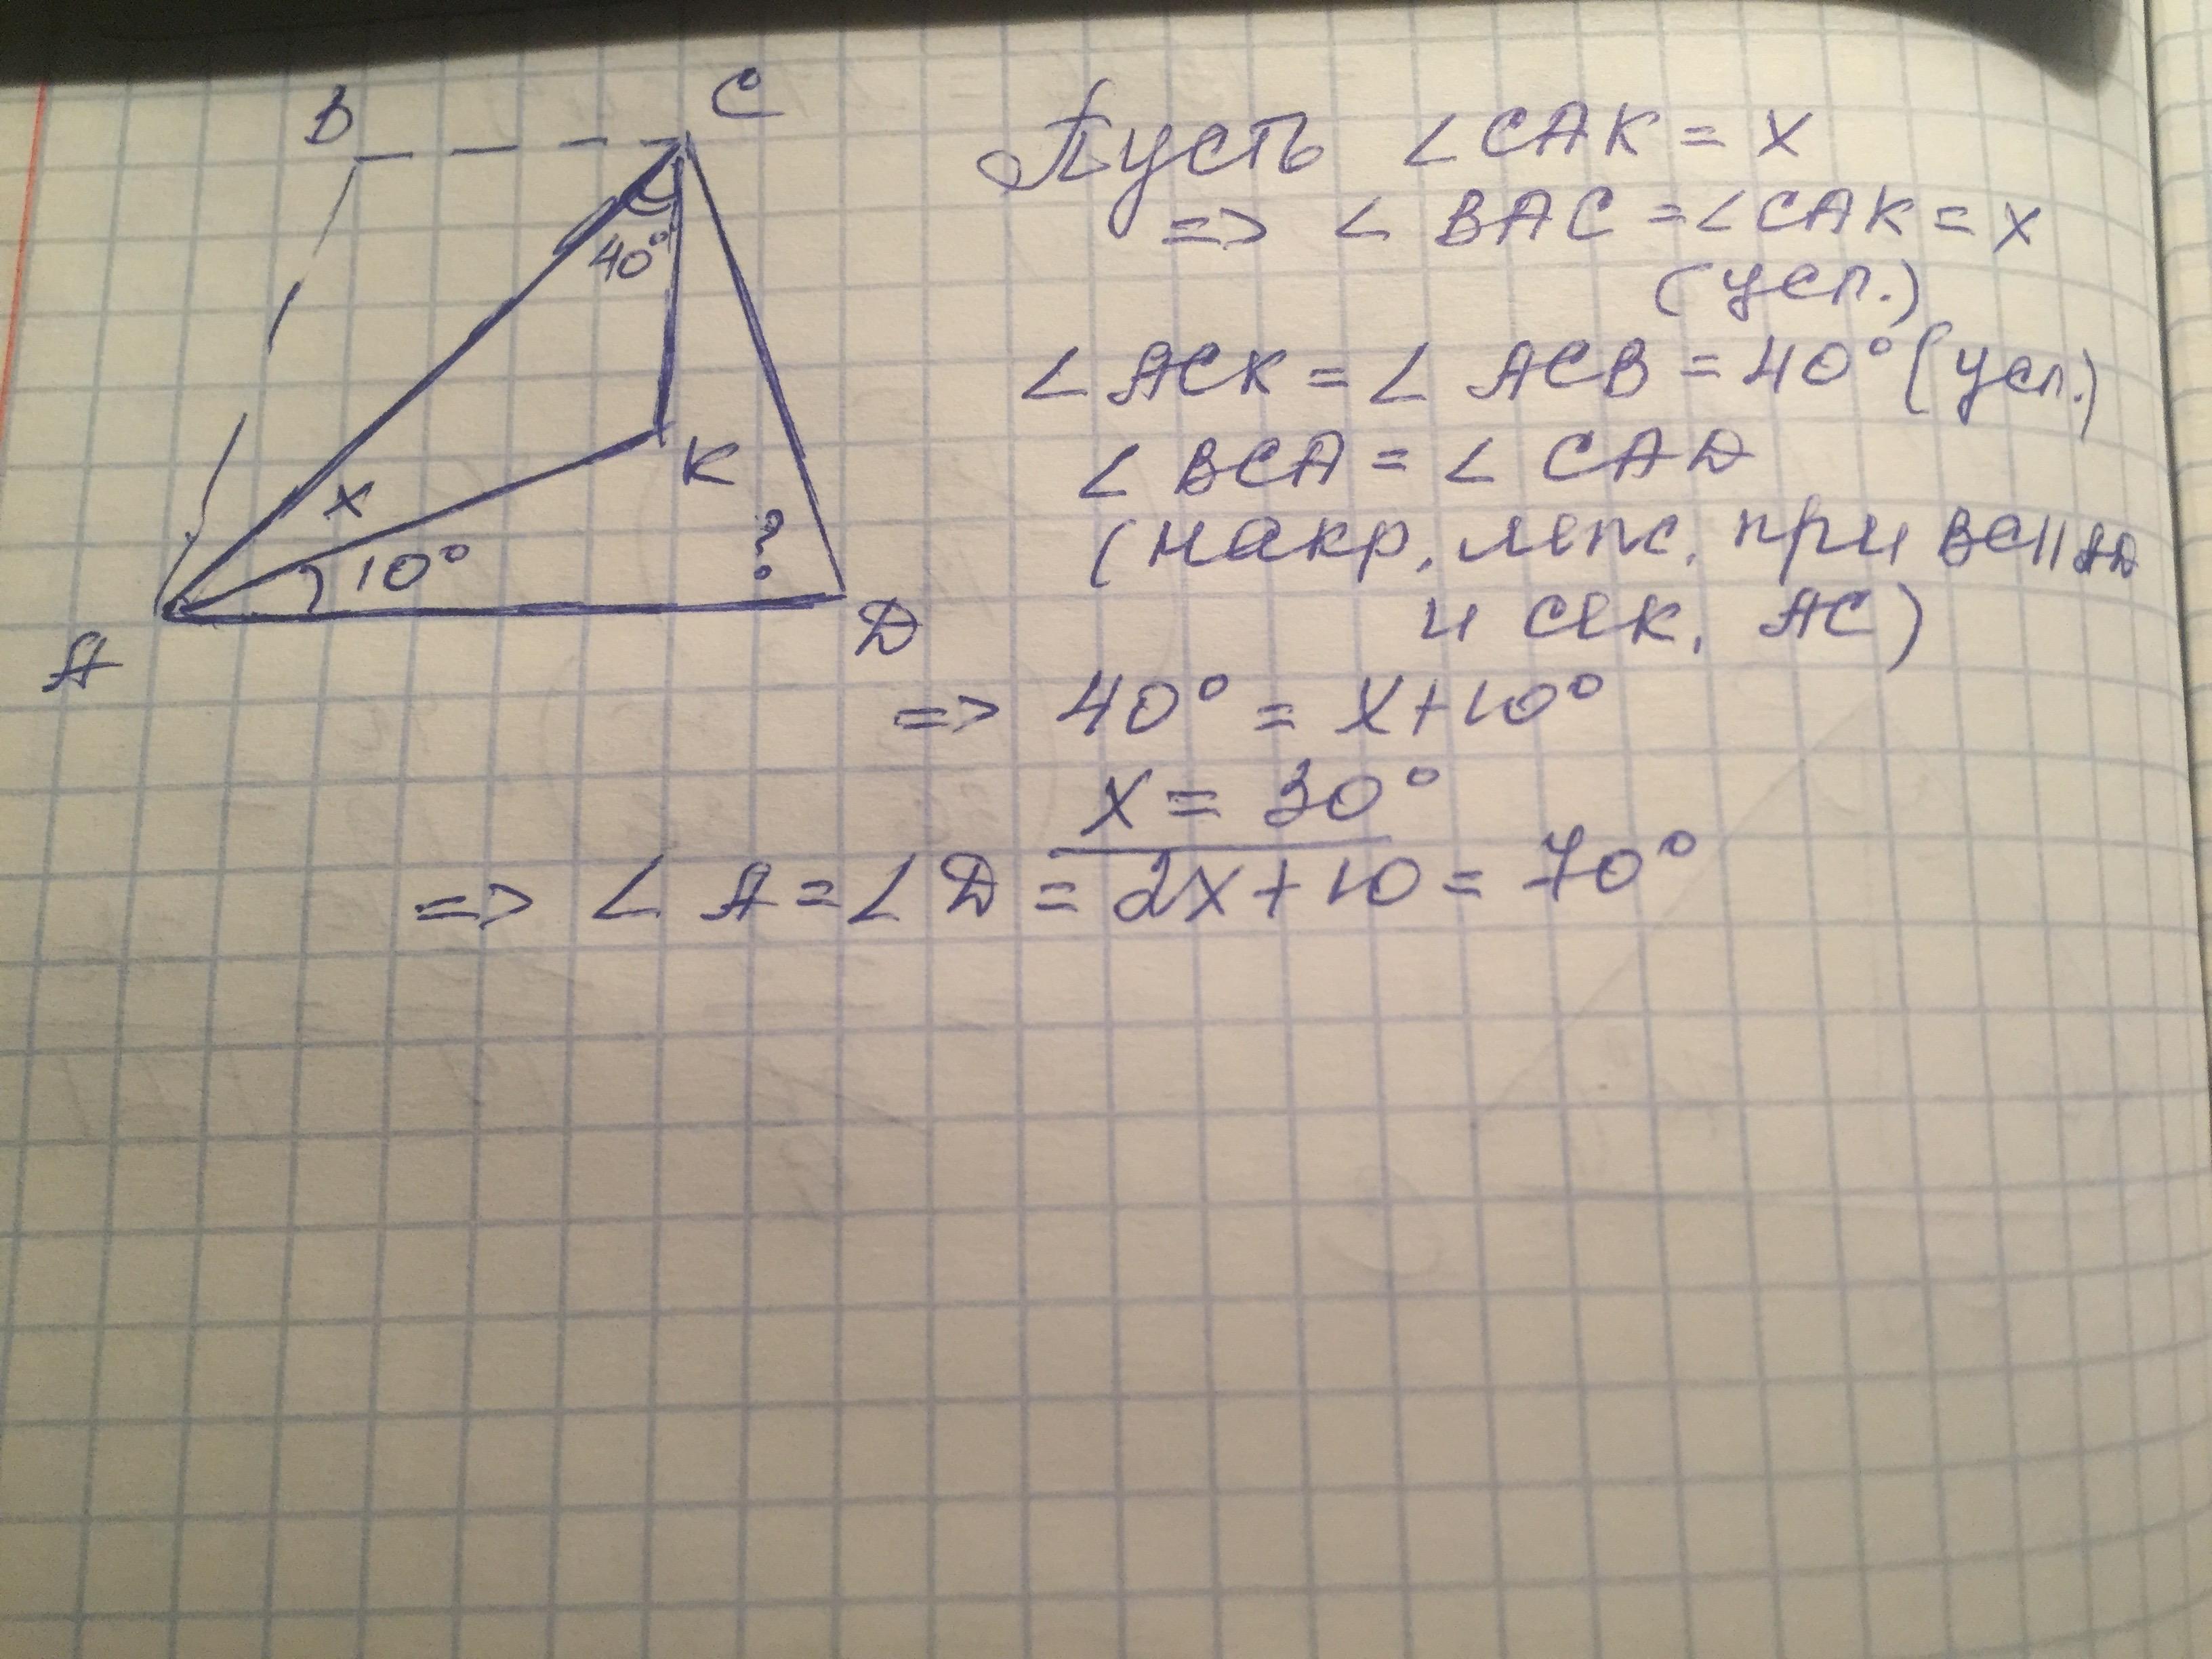 B
C
40°
K
x
10°
?
A
D
Пусть ∠CAK = x
=> ∠BAC = ∠CAK = x
(усл.)
∠ACK = ∠ACB = 40° (усл.)
∠BCA = ∠CAD
(накр. леж. при BC || AD
и сек. AC)
=> 40° = x+10°
x = 30°
=> ∠A = ∠D = 2x+10 = 70°